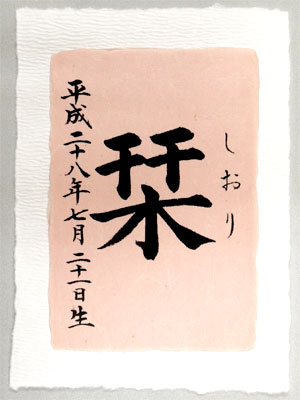 しおり
栞
平成二十八年七月二十一日生